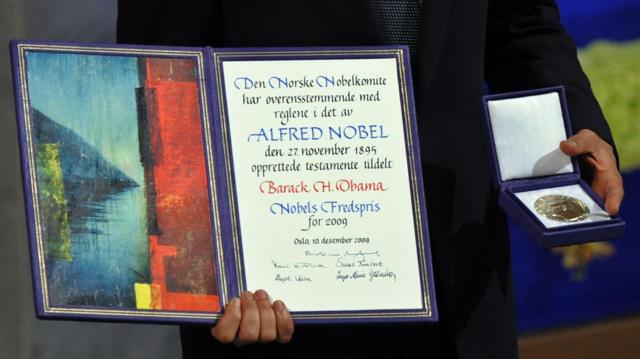 Den Norske Nobelkomite
har overensstemmende med
reglene i det av
ALFRED NOBEL
den 27. november 1895
opprettede testamente tildelt
Barack H. Obama
Nobels Fredspris
for 2009
Oslo, 10. desember 2009